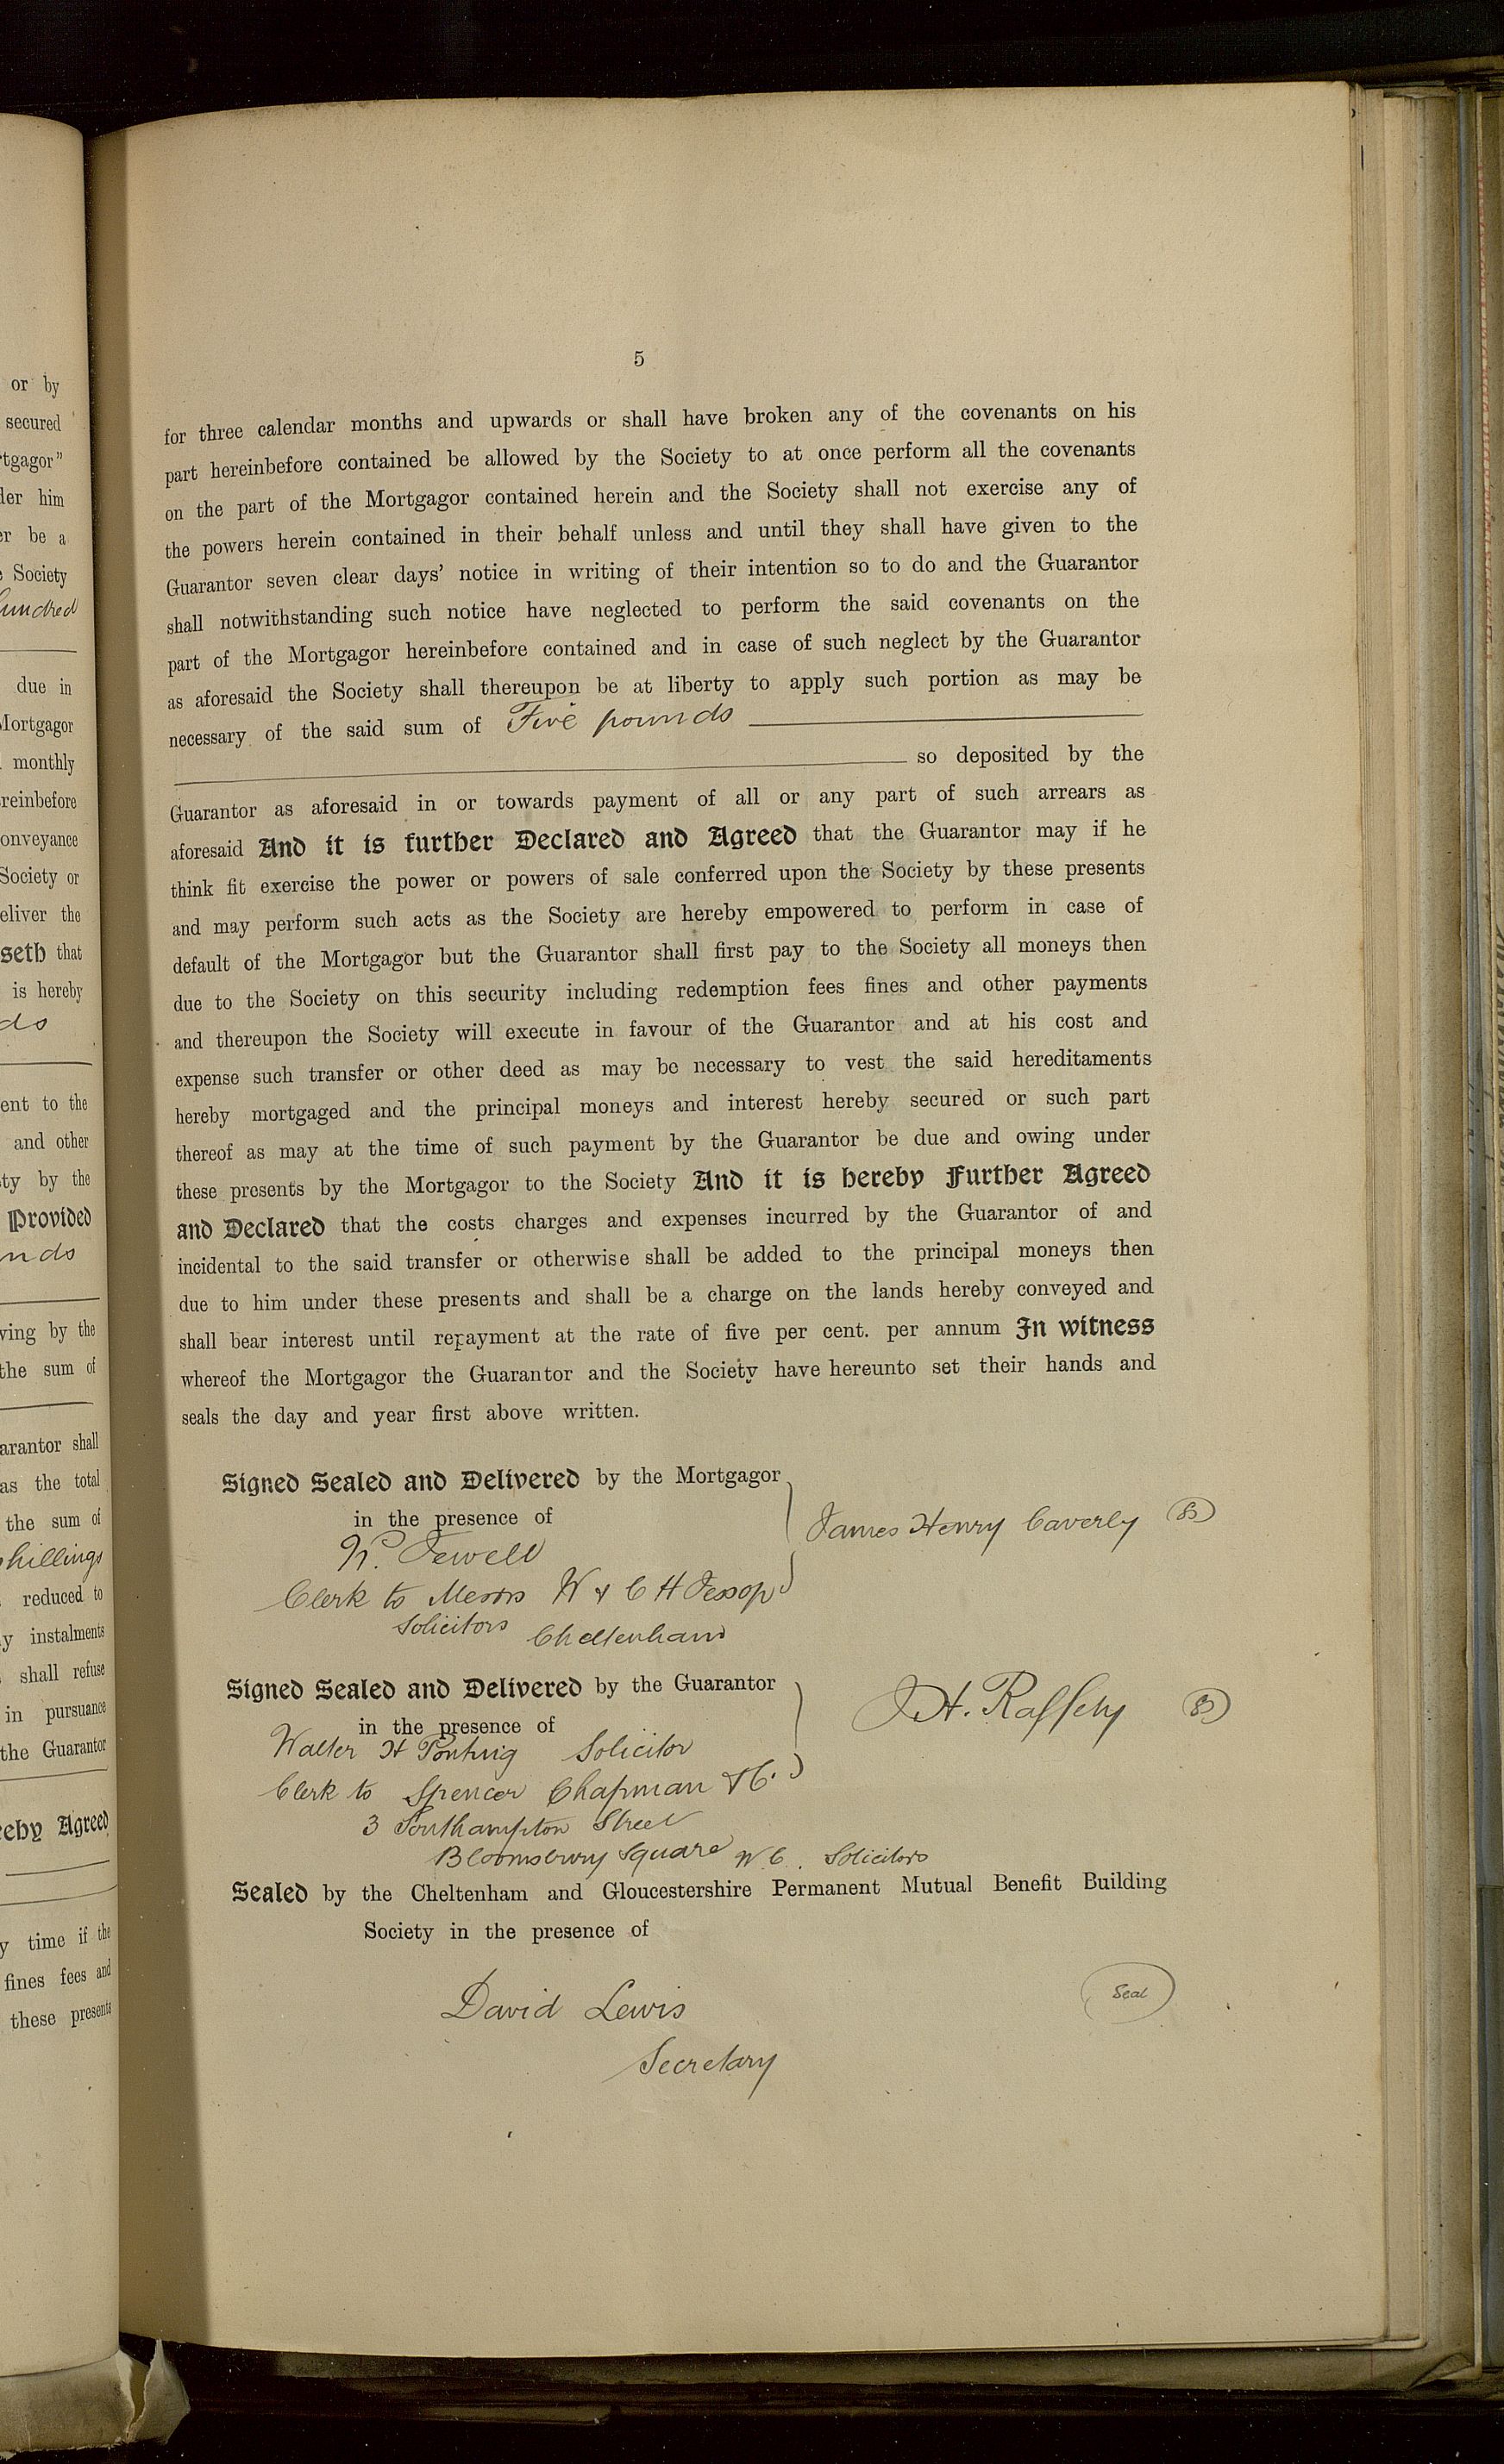 or by
secured
rtgagor"
der him
er be a
Society
hundred
due in
Mortgagor
monthly
reinbefore
onveyance
Society or
eliver the
seth that
is hereby
ds
ent to the
and other
ty by the
Provided
nds
ving by the
the sum of
arantor shall
as the total
the sum of
shillings
reduced to
y instalments
shall refuse
in pursuance
the Guarantor
reby Agreed
y time if the
fines fees and
these presents
5
for three calendar months and upwards or shall have broken any of the covenants on his
part hereinbefore contained be allowed by the Society to at once perform all the covenants
on the part of the Mortgagor contained herein and the Society shall not exercise any of
the powers herein contained in their behalf unless and until they shall have given to the
Guarantor seven clear days' notice in writing of their intention so to do and the Guarantor
shall notwithstanding such notice have neglected to perform the said covenants on the
part of the Mortgagor hereinbefore contained and in case of such neglect by the Guarantor
as aforesaid the Society shall thereupon be at liberty to apply such portion as may be
necessary of the said sum of Five pounds
so deposited by the
Guarantor as aforesaid in or towards payment of all or any part of such arrears as
aforesaid And it is further Declared and Agreed that the Guarantor may if he
think fit exercise the power or powers of sale conferred upon the Society by these presents
and may perform such acts as the Society are hereby empowered to perform in case of
default of the Mortgagor but the Guarantor shall first pay to the Society all moneys then
due to the Society on this security including redemption fees fines and other payments
and thereupon the Society will execute in favour of the Guarantor and at his cost and
expense such transfer or other deed as may be necessary to vest the said hereditaments
hereby mortgaged and the principal moneys and interest hereby secured or such part
thereof as may at the time of such payment by the Guarantor be due and owing under
these presents by the Mortgagor to the Society And it is hereby Further Agreed
and Declared that the costs charges and expenses incurred by the Guarantor of and
incidental to the said transfer or otherwise shall be added to the principal moneys then
due to him under these presents and shall be a charge on the lands hereby conveyed and
shall bear interest until repayment at the rate of five per cent. per annum In witness
whereof the Mortgagor the Guarantor and the Society have hereunto set their hands and
seals the day and year first above written.
Signed Sealed and Delivered by the Mortgagor
in the presence of
James Henry Caverly
Jewell
Clerk to Messrs W & C H Jessop
Solicitors Cheltenham
Signed Sealed and Delivered by the Guarantor
in the presence of
J H. Raffety
Walter H Ponting Solicitor
Clerk to Spencer Chapman & Co.
3 Southampton Street
Bloomsbury Square W.C. Solicitors
Sealed by the Cheltenham and Gloucestershire Permanent Mutual Benefit Building
Society in the presence of
Seal
David Lewis
Secretary